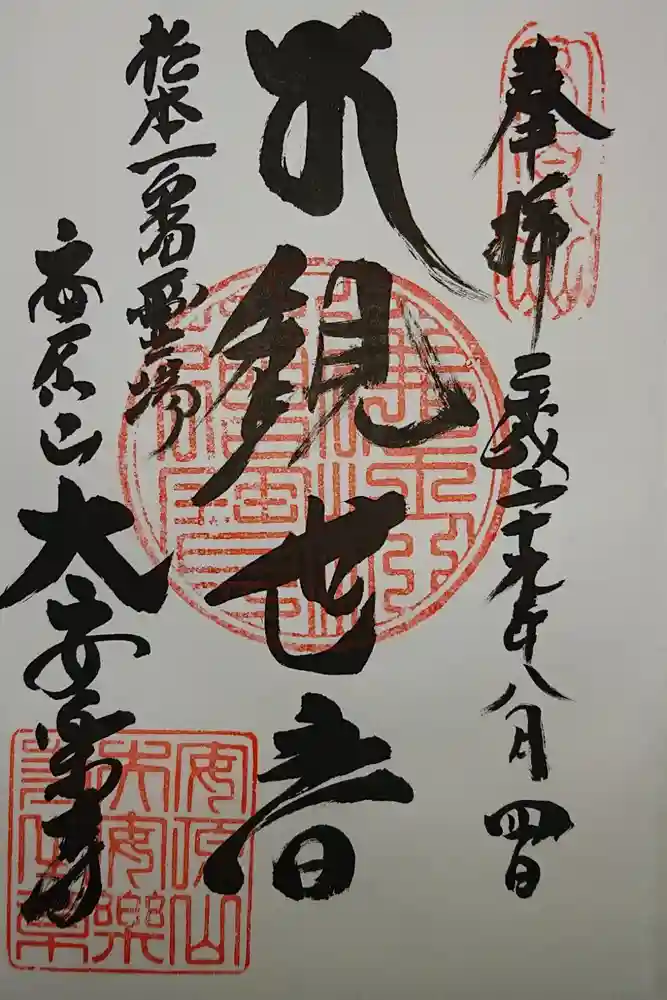 奉拝
平成二十九年八月四日
観世音
松本一番霊場
安原山
大安楽寺
安原山
大安樂